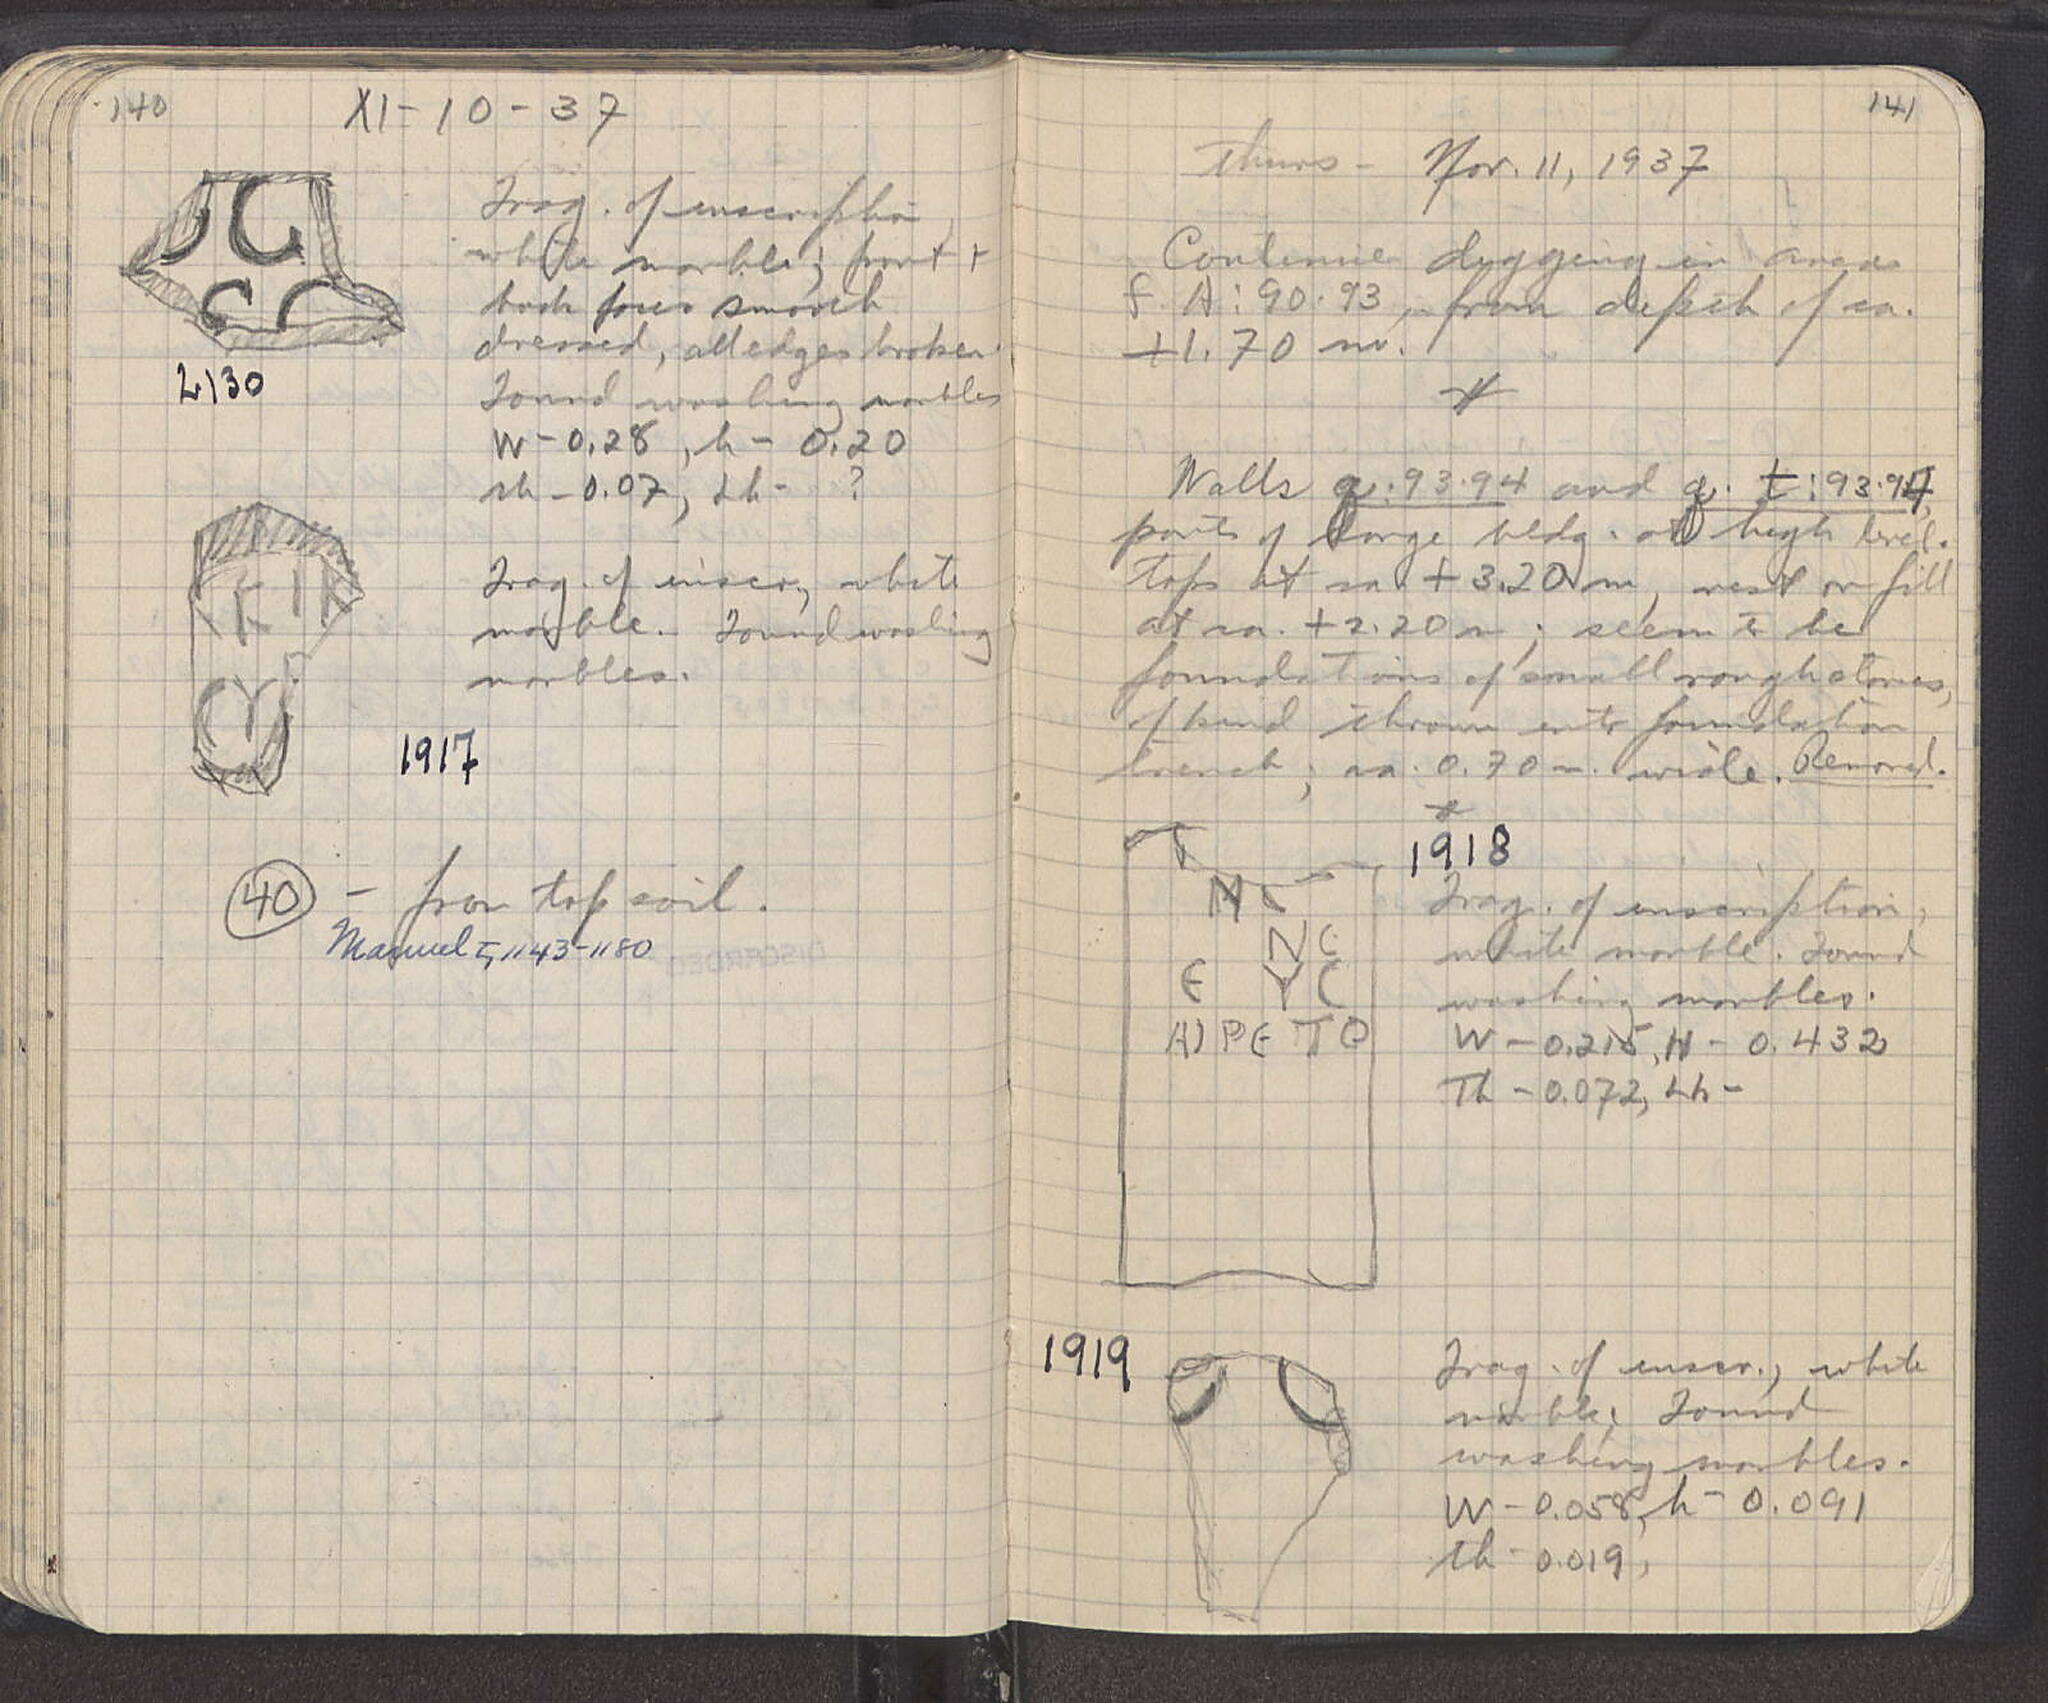 140
XI-10-37
Frag. of inscription,
white marble; front +
back faces smooth
dressed, all edges broken.
Found washing marbles
W-0.28, h- 0.20
th-0.07, Lh- ?
2130
Frag. of inscr., white
marble. Found washing
marbles.
K I K
C Y
1917
40 - from top soil.
1143-1180
141
Thurs- Nov. 11, 1937
Continue digging in area
f. A:90.93, from depth of ca.
+1.70 m.
Walls q:93.94 and q. t:93.94,
parts of large bldg. at high level.
tops at ca. +3.20 m, rest on fill
at ca. +2.20 m; seem to be
foundations of small rough stones,
of kind thrown into foundation
trench; ca. 0.70 m. wide. Removed.
1918
Frag. of inscription,
white marble. Found
washing marbles.
W-0.215, H- 0.432
Th-0.072, Lh-
N
N C
E Y C
P E T O
1919
Frag. of inscr., white
marble; Found
washing marbles.
W-0.058, h- 0.091
th-0.019,